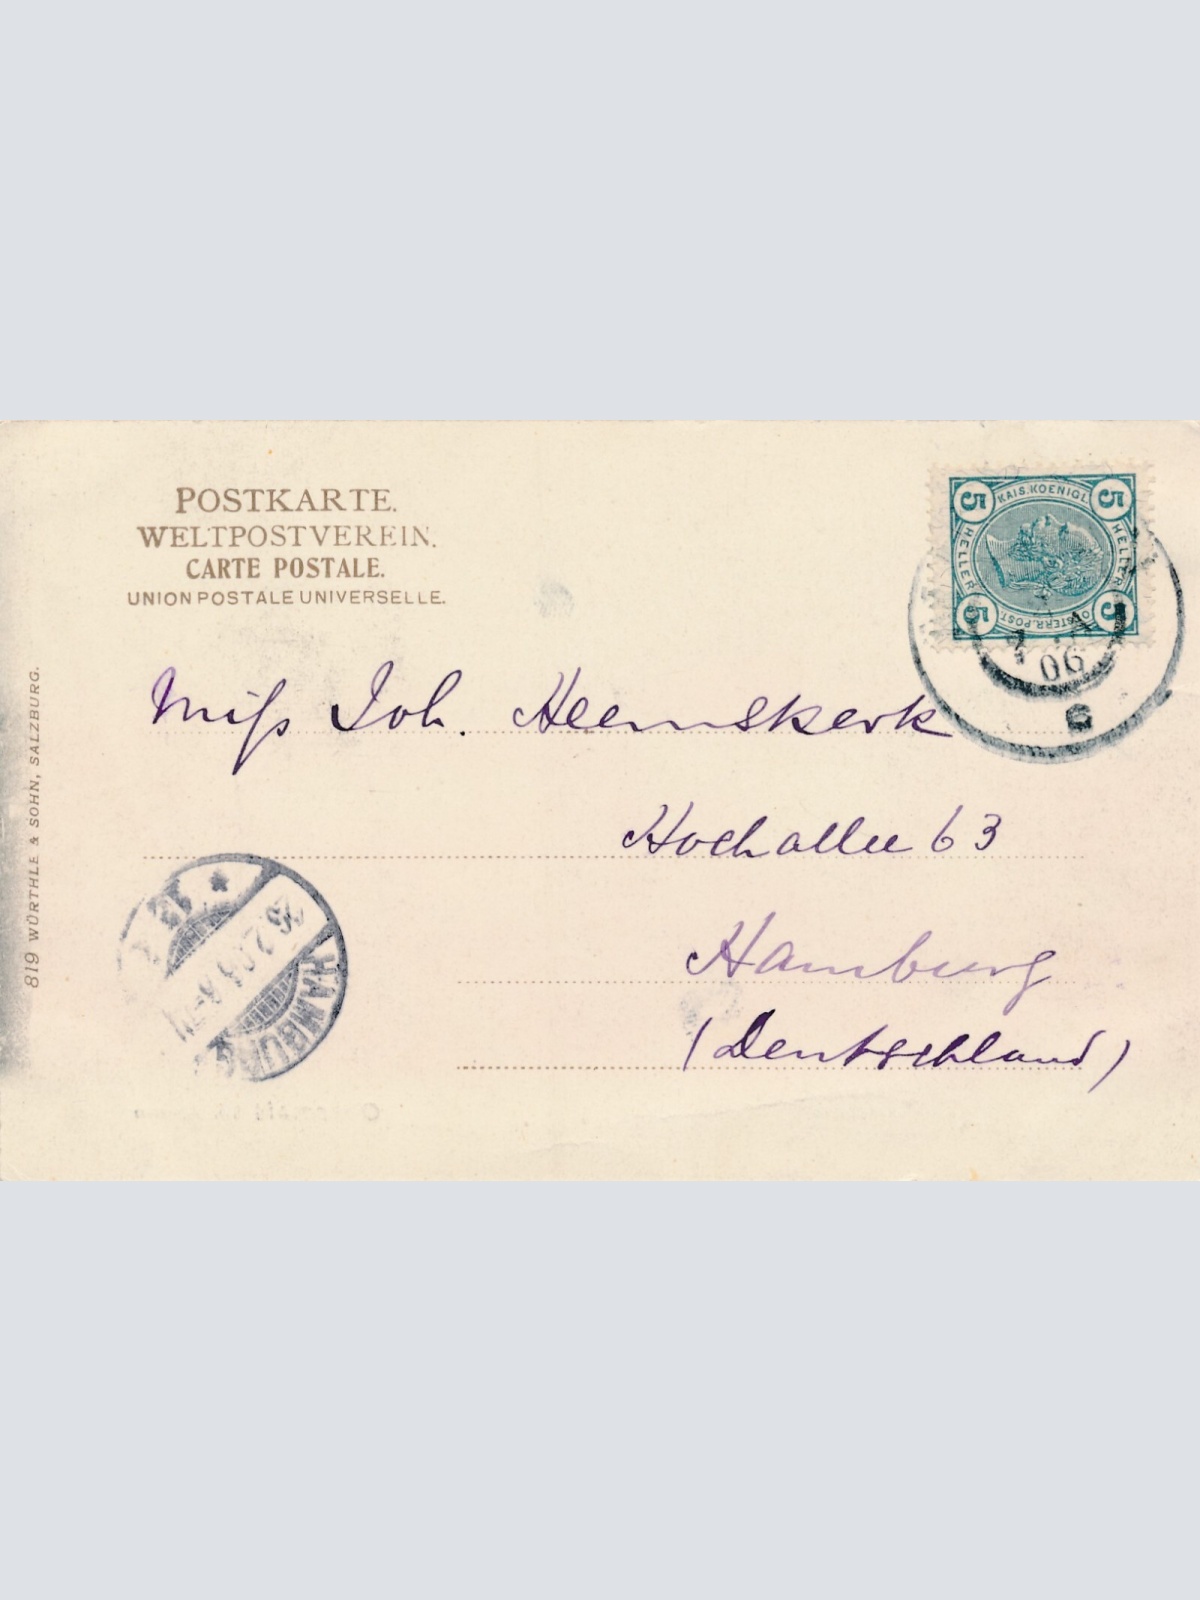 POSTKARTE.
WELTPOSTVEREIN.
CARTE POSTALE.
UNION POSTALE UNIVERSELLE.
KAIS. KOENIGL.
5 5
HELLER HELLER
5 5
OESTERR. POST.
06
Miſs Joh. Heemskerk
Hochallee 63
Hamburg
(Deutschland)
HAMBURG
819 WÜRTHLE & SOHN, SALZBURG.